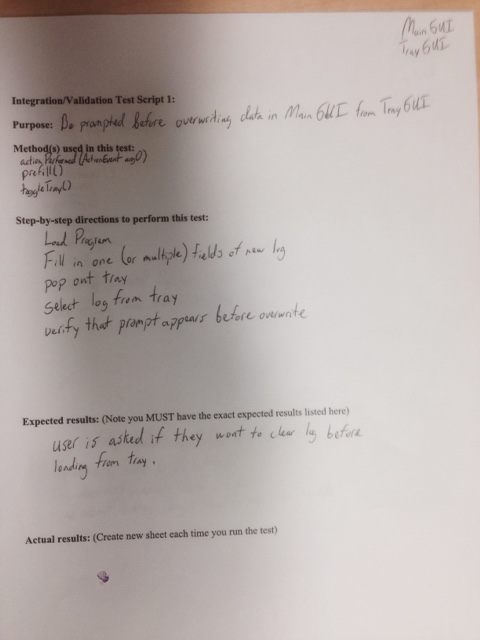 Main GUI
Tray GUI
Integration/Validation Test Script 1:
Purpose: Be prompted Before overwriting data in Main GUI from Tray GUI
Method(s) used in this test:
action Performed (ActionEvent arg0)
prefill()
toggleTray()
Step-by-step directions to perform this test:
Load Program
Fill in one (or multiple) fields of new log
pop out tray
Select log from tray
verify that prompt appears before overwrite
Expected results: (Note you MUST have the exact expected results listed here)
User is asked if they want to clear log before
loading from tray.
Actual results: (Create new sheet each time you run the test)